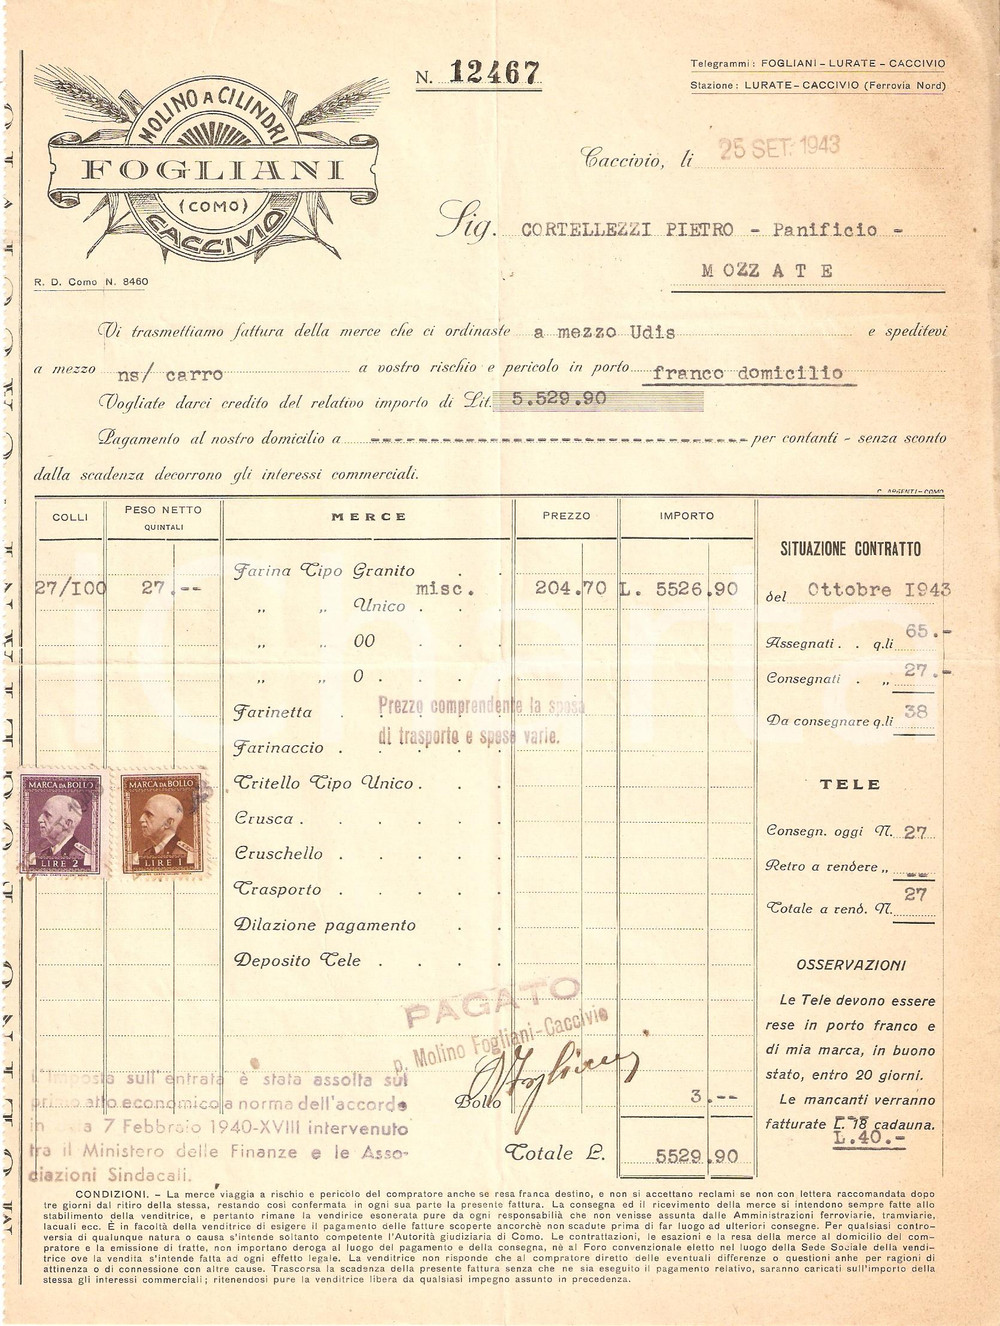 MOLINO A CILINDRI
FOGLIANI
(COMO)
CACCIVIO
R. D. Como N. 8460
N. 12467
Telegrammi: FOGLIANI - LURATE - CACCIVIO
Stazione: LURATE - CACCIVIO (Ferrovia Nord)
Caccivio, li 25 SET. 1943
Sig. CORTELLEZZI PIETRO - Panificio -
MOZZATE
Vi trasmettiamo fattura della merce che ci ordinaste a mezzo Udis e speditevi
a mezzo ns/ carro a vostro rischio e pericolo in porto franco domicilio
Vogliate darci credito del relativo importo di Lit. 5.529.90
Pagamento al nostro domicilio a ---------- per contanti - senza sconto
dalla scadenza decorrono gli interessi commerciali.
C. ARGENTI - COMO
COLLI PESO NETTO QUINTALI MERCE PREZZO IMPORTO
Farina Tipo Granito
27/100 27.-- misc. 204.70 L. 5526.90
„ „ Unico
„ „ 00
„ „ 0
Farinetta
Farinaccio
Prezzo comprendente la spesa
di trasporto e spese varie.
Tritello Tipo Unico
Crusca
Cruschello
Trasporto
Dilazione pagamento
Deposito Tele
MARCA DA BOLLO
LIRE 2
MARCA DA BOLLO
LIRE 1
PAGATO
p. Molino Fogliani-Caccivio
Fogliani
Bollo 3.--
Totale L. 5529.90
L'imposta sull'entrata è stata assolta sul
primo atto economico a norma dell'accordo
in 7 Febbraio 1940-XVIII intervenuto
tra il Ministero delle Finanze e le Asso-
ciazioni Sindacali.
SITUAZIONE CONTRATTO
del Ottobre 1943
Assegnati . . q.li 65.-
Consegnati . „ 27.-
Da consegnare q.li 38
TELE
Consegn. oggi N. 27
Retro a rendere „ --
Totale a rend. N. 27
OSSERVAZIONI
Le Tele devono essere
rese in porto franco e
di mia marca, in buono
stato, entro 20 giorni.
Le mancanti verranno
fatturate £. 18 cadauna.
L.40.-
CONDIZIONI. - La merce viaggia a rischio e pericolo del compratore anche se resa franca destino, e non si accettano reclami se non con lettera raccomandata dopo
tre giorni dal ritiro della stessa, restando così confermata in ogni sua parte la presente fattura. La consegna ed il ricevimento della merce si intendono sempre fatte allo
stabilimento della venditrice, e pertanto rimane la venditrice esonerata pure da ogni responsabilià che non venisse assunta dalle Amministrazioni ferroviarie, tramviarie,
lacuali ecc. È in facoltà della venditrice di esigere il pagamento delle fatture scoperte ancorchè non scadute prima di far luogo ad ulteriori consegne. Per qualsiasi contro-
versia di qualunque natura o causa s'intende soltanto competente l'Autorità giudiziaria di Como. Le contrattazioni, le esazioni e la resa della merce al domicilio del com-
pratore e la emissione di tratte, non importano deroga al luogo del pagamento e della consegna, nè al Foro convenzionale eletto nel luogo della Sede Sociale della vendi-
trice ove la vendita s'intende fatta ad ogni effetto legale. La venditrice non risponde che al compratore diretto delle eventuali differenze o questioni anhe per ragioni di
attinenza o di connessione con altre cause. Trascorsa la scadenza della presente fattura senza che ne sia eseguito il pagamento relativo, saranno caricati sull'importo della
stessa gli interessi commerciali; ritenendosi pure la venditrice libera da qualsiasi impegno assunto in precedenza.